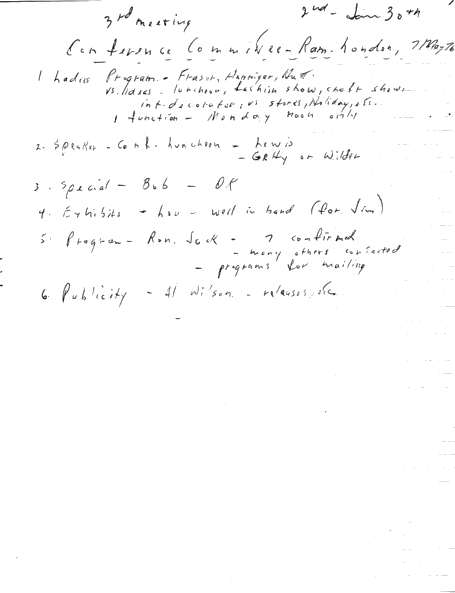 3rd meeting 2nd - Jan 30th
Conference Committee - Ram. London, 7 May 76
1 Ladies Program. - Fraser, Nutt.
vs. ideas. luncheon, fashion show, craft show.
int. decorator, vs stores, Holiday, etc.
1 function - Monday noon only
2. Speaker - Conf. Luncheon - Lewis
- Getty or Wilder
3. Special - Bob - OK
4. Exhibits + - well in hand (for Jim)
5. Program - Ron. Jack - 7 confirmed
- many others contacted
- programs for mailing
6. Publicity - Al Wilson - releases, etc
-